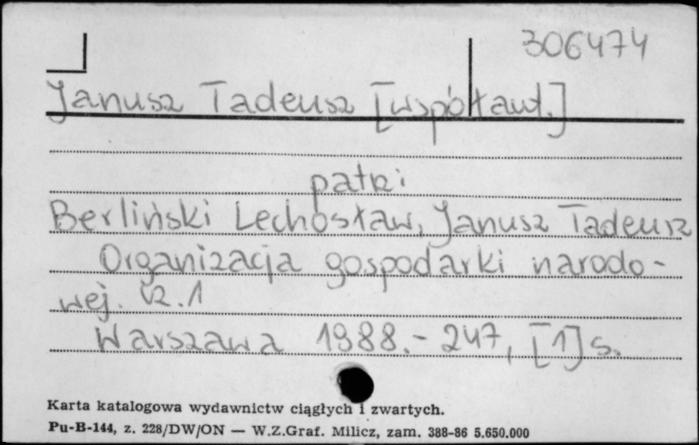 306474
Janusz Tadeusz [współaut.]
patrz
Berliński Lechosław, Janusz Tadeusz
Organizacja gospodarki narodo-
wej. Cz. 1
Warszawa 1988. - 247, [1] s.
Karta katalogowa wydawnictw ciągłych i zwartych.
Pu-B-144, z. 228/DW/ON — W.Z.Graf. Milicz, zam. 388-86 5.650.000